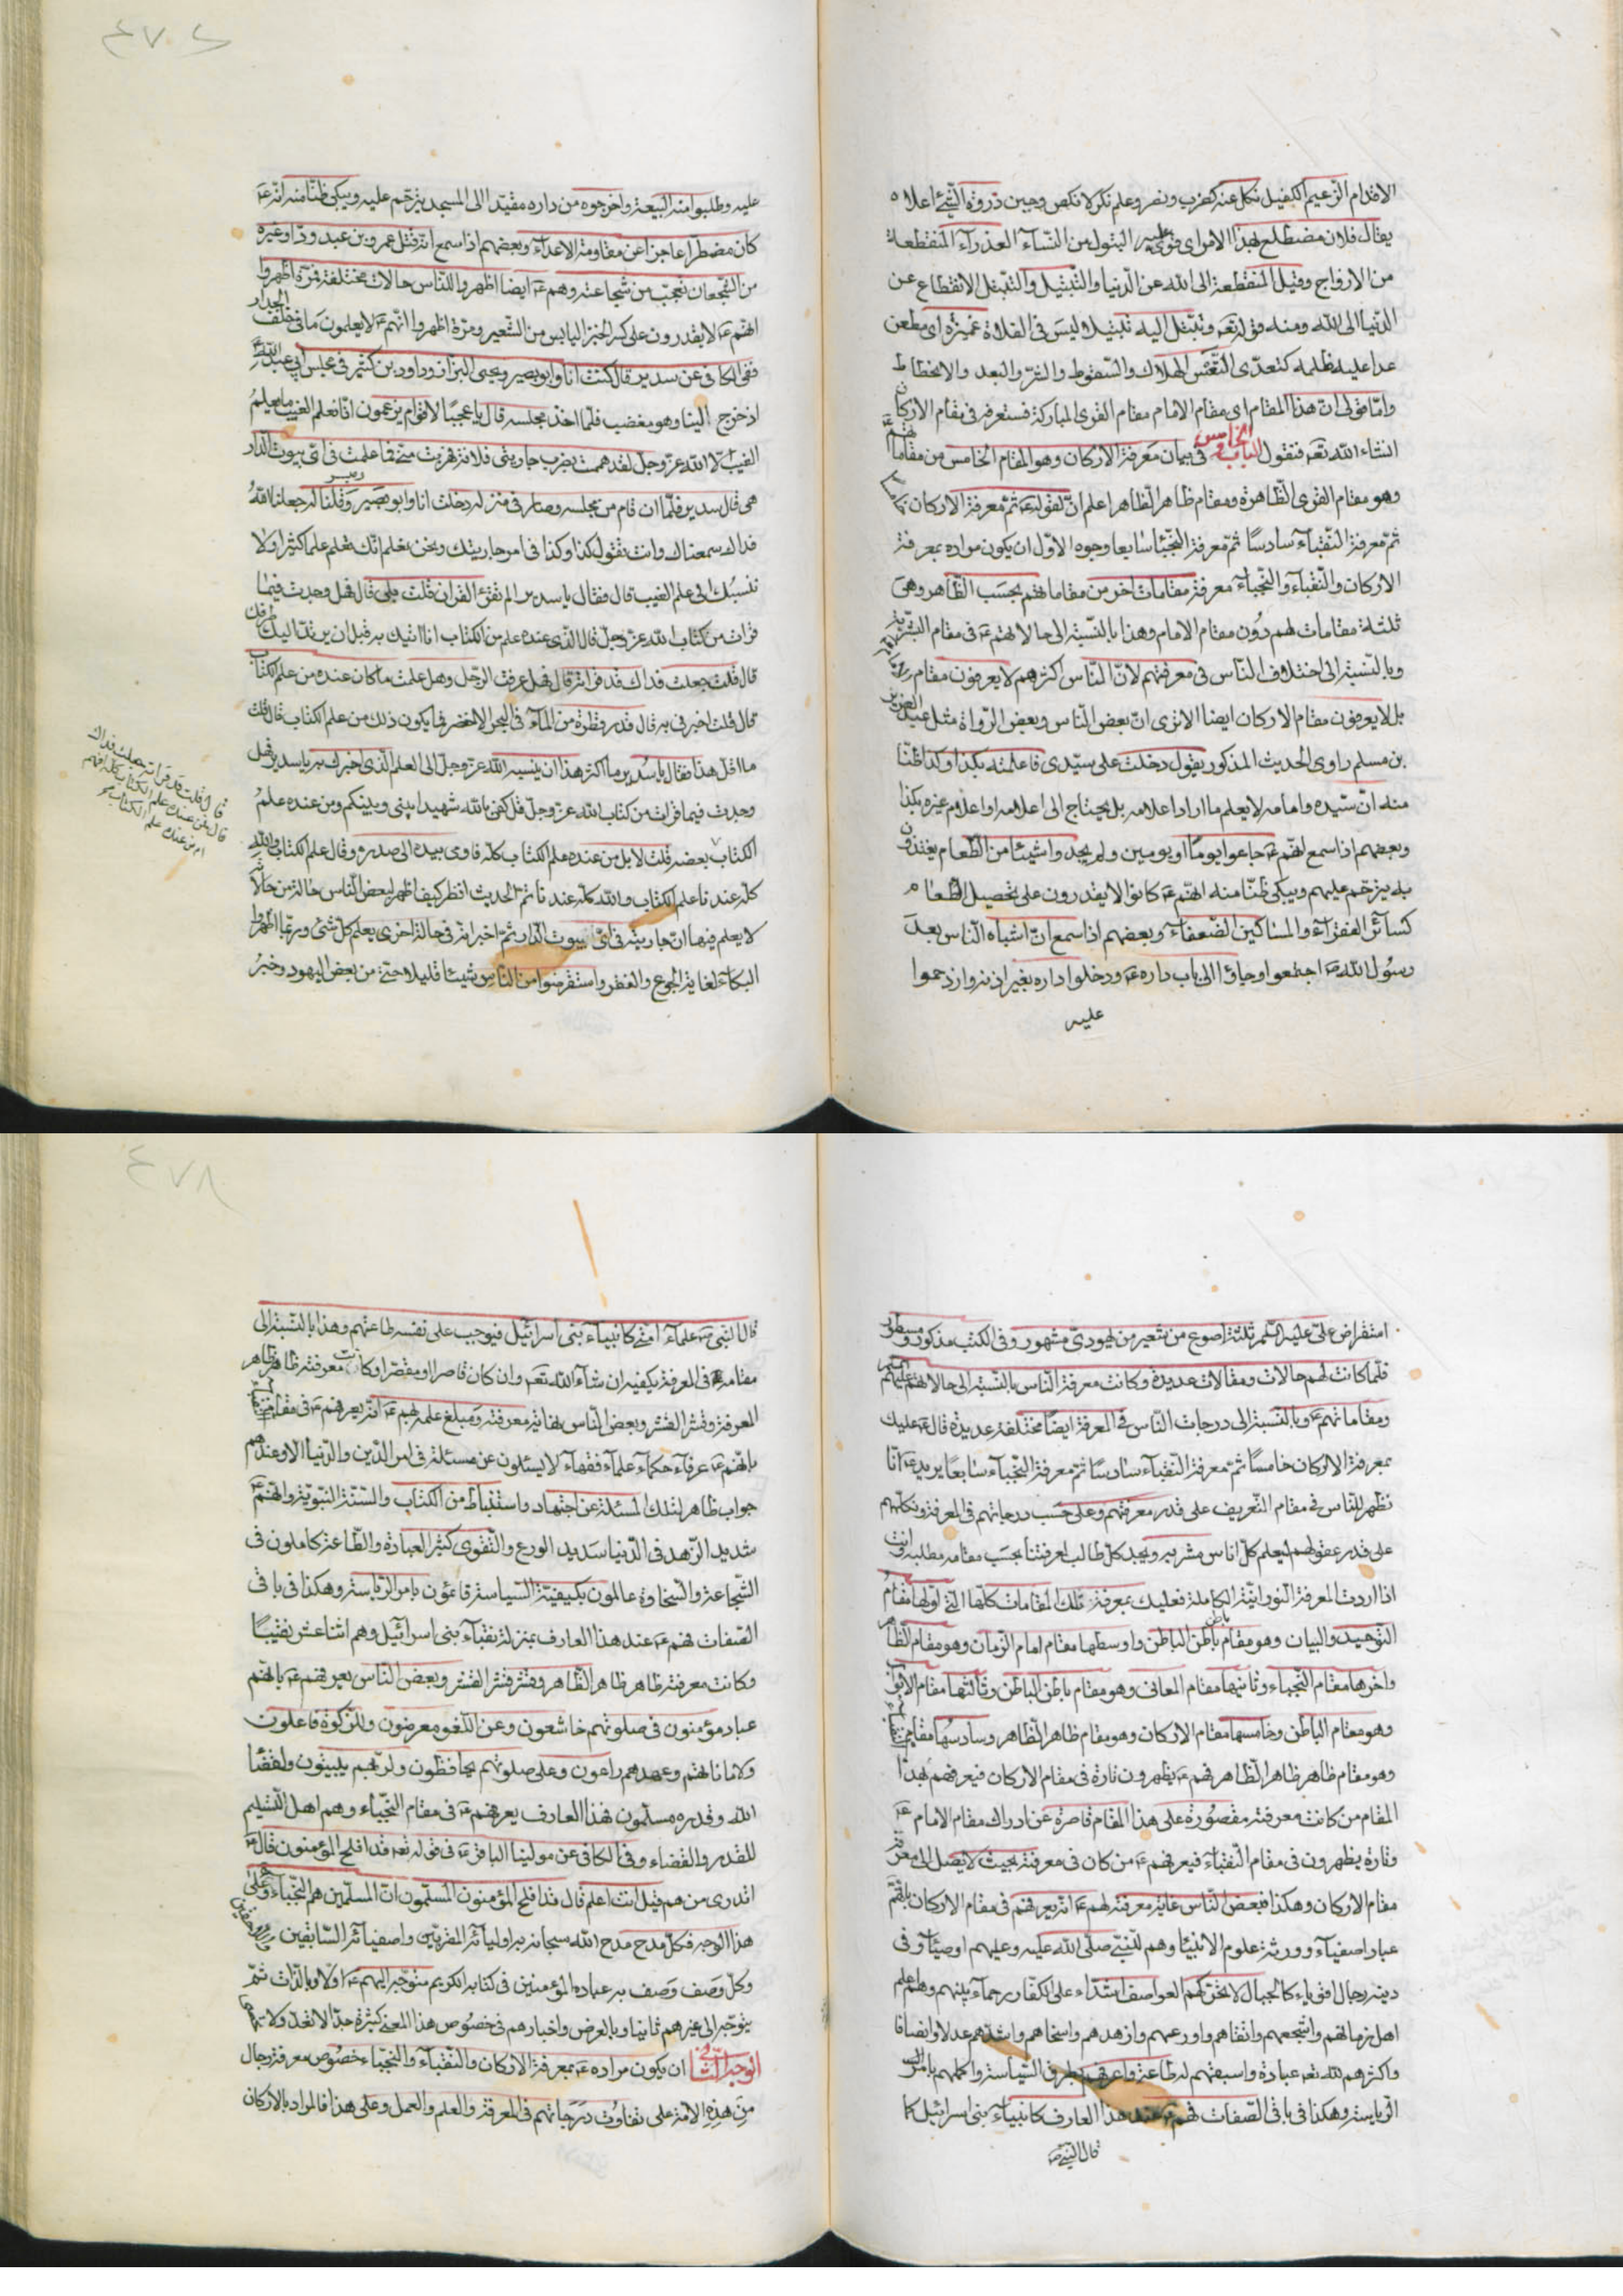 الاقدام الزعيم الكفيل نكل عنه كضرب ونصر وعلم نكولا نكص وجبن ذروة الشئ اعلاه
يقال فلان مضطلع بهذا الامر اى قوى عليه البتول من النسآء العذرآء المنقطعة
من الازواج وقيل المنقطعة الى الله عن الدنيا والتبتيل والتبتل الانقطاع عن
الدنيا الى الله ومنه قوله تعه وتبتل اليه تبتيلا وليس فى الفلاة غميزة اى مطعن
عدا عليه ظلمه كتعدى التعس الهلاك والسقوط والشر والبعد والانحطاط
وامّا قولى ان هذا المقام اى مقام الامام مقام القرى المباركة فستعرفه فى مقام الاركان
انشاء الله تعه فنقول الباب الخامس فى بيان معرفة الاركان وهو المقام الخامس من مقاماتهم
وهو مقام القرى الظاهرة ومقام ظاهر الظاهر اعلم ان لقوله ع ثم معرفة الاركان
ثم معرفة النقبآء سادسًا ثم معرفة النجبا سابعا وجوه الاول ان يكون مراده بمعرفة
الاركان والنقباء والنجبآء معرفة مقامات اخر من مقاماتهم بحسب الظاهر وهى
ثلثة مقامات لهم دون مقام الامام وهذا بالنسبة الى حالاتهم ع فى مقام البشرية
وبالنسبة الى اختلاف الناس فى معرفتهم لان الناس اكثرهم لا يعرفون مقام
بل لا يعرفون مقام الاركان ايضا الا ترى ان بعض الناس وبعض الرواة مثل عبد العزيز
بن مسلم راوى الحديث المذكور يقول دخلت على سيدى فاعلمته بكذا وكذا ظنا
منه ان سيده وامامه لا يعلم ما اراد اعلامه بل يحتاج الى اعلامه او اعلام غيره بكذا
وبعضهم اذا سمع انهم ع جاعوا يومًا او يومين ولم يجدوا شيئا من الطعام يغتذون
به يترحم عليهم ويبكى ظنا منه انهم ع كانوا لا يقدرون على تحصيل الطعام
كسائر الفقرآء والمساكين الضعفآء وبعضهم اذا سمع ان اشباه الناس بعد
رسول الله ص اجتمعوا وجاؤا الى باب داره ع ودخلوا داره بغير اذنه وازدحموا
عليه
٤٧٧
عليه وطلبوا منه البيعة واخرجوه من داره مقيدا الى المسجد يترحم عليه ويبكى ظنا منه انه ع
كان مضطرا عاجزا عن مقاومة الاعدآء وبعضهم اذا سمع انه قتل عمرو بن عبد ود وغيره
من الشجعان تعجب من شجاعته وهم ع ايضا اظهروا للناس حالات مختلفة فمرة اظهروا
انهم ع لا يقدرون على كسر الخبز اليابس من الشعير ومرة اظهروا انهم ع لا يعلمون ما فى خلف الجدار
ففى الكافى عن سدير قال كنت انا وابو بصير ويحيى البزاز وداود بن كثير فى مجلس ابى عبد الله ع
اذ خرج الينا وهو مغضب فلما اخذ مجلسه قال يا عجبًا لاقوام يزعمون انا نعلم الغيب ما يعلم
الغيب الا الله عز وجل لقد هممت بضرب جاريتى فلانة فهربت منى فما علمت فى اى بيوت الدار
هى قال سدير فلما ان قام من مجلسه وصار فى منزله دخلت انا وابو بصير وميسر وقلنا له جعلنا الله
فداك سمعناك وانت تقول كذا وكذا فى امر جاريتك ونحن نعلم انك تعلم علما كثيرا ولا
ننسبك الى علم الغيب قال فقال يا سدير الم تقرء القران قلت بلى قال فهل وجدت فيما
قرات من كتاب الله عز وجل قال الذى عنده علم من الكتاب انا اتيك به قبل ان يرتد اليك طرفك
قال قلت جعلت فداك قد قراته قال فهل عرفت الرجل وهل علمت ما كان عنده من علم الكتاب
قال قلت اخبرنى به قال قدر قطرة من المآء فى البحر الاخضر فما يكون ذلك من علم الكتاب قال قلت
ما اقل هذا فقال يا سدير ما اكثر هذا ان ينسبه الله عز وجل الى العلم الذى اخبرك به يا سدير فهل
وجدت فيما قرات من كتاب الله عز وجل قل كفى بالله شهيدا بينى وبينكم ومن عنده علم
الكتاب بعضه قلت لا بل من عنده علم الكتاب كله فاومى بيده الى صدره وقال علم الكتاب والله
كله عندنا علم الكتاب والله كله عندنا تم الحديث انظر كيف اظهر لبعض الناس حالة من حالاته
لا يعلم فيها ان جاريته فى اى بيوت الدار ثم اخبر انه فى حالة اخرى يعلم كل شئ وربما اظهروا
البكآء لغاية الجوع والفقر واستقرضوا من الناس شيئا قليلا حتى من بعض اليهود وخبر
قال قلت قد قراته جعلت فداك
قال فمن عنده علم الكتاب كله افهم
ام من عنده علم الكتاب
استقراض على عليه السلم ثلثة اصوع من شعير من يهودى مشهور وفى الكتب مذكور ومسطور
فلما كانت لهم حالات ومقالات عديدة وكانت معرفة الناس بالنسبة الى حالاتهم عليهم
ومقاماتهم ع وبالنسبة الى درجات الناس فى المعرفة ايضًا مختلفة عديدة قال ع عليك
بمعرفة الاركان خامسًا ثم معرفة النقبآء سادسًا ثم معرفة النجبآء سابعًا يريد ع انا
نظهر للناس فى مقام التعريف على قدر معرفتهم وعلى حسب درجاتهم فى المعرفة ونكلمهم
على قدر عقولهم ليعلم كل اناس مشربه ويجد كل طالب لمعرفتنا بحسب مقامه مطلبه وانت
اذا اردت المعرفة النورانية الكاملة فعليك بمعرفة تلك المقامات كلها التى اولها مقام
التوحيد والبيان وهو مقام باطن باطن الباطن واوسطها مقام امام الزمان وهو مقام الظاهر
واخرها مقام النجباء وثانيها مقام المعانى وهو مقام باطن الباطن وثالثها مقام الابواب
وهو مقام الباطن وخامسها مقام الاركان وهو مقام ظاهر الظاهر وسادسها مقام
وهو مقام ظاهر ظاهر الظاهر فهم ع يظهرون تارة فى مقام الاركان فيعرفهم بهذا
المقام من كانت معرفته مقصورة على هذا المقام قاصرة عن ادراك مقام الامام ع
وتارة يظهرون فى مقام النقباء فيعرفهم ع من كان فى معرفته بحيث لا يصل الى معرفة
مقام الاركان وهكذا فبعض الناس غاية معرفته لهم ع انه يعرفهم فى مقام الاركان بانهم
عباد اصفيآء وورثة علوم الانبيآء وهم للنبى صلى الله عليه وعليهم اوصيآء وفى
دينه رجال اقوياء كالجبال لا تحركهم العواصف اشدّاء على الكفار رحماء بينهم وهم اعلم
اهل زمانهم واشجعهم واتقاهم واورعهم وازهدهم واسخاهم واشدهم عدلا وانصافا
واكثرهم لله تعه عبادة واسبقهم له طاعة واعرفهم بطرق السياسة واكملهم بامور
الرياسة وهكذا فى باقى الصفات فهم ع عند هذا العارف كانبيآء بنى اسرائيل كما
قال النبى ص
٤٧٨
قال النبى ص علمآء امتى كانبيآء بنى اسرائيل فيوجب على نفسه طاعتهم وهذا بالنسبة الى
مقامه فى المعرفة يكفيه ان شآء الله تعه وان كان قاصرا او مقصرا وكانت معرفته ظاهر ظاهر
المعرفة وقشر القشر وبعض الناس نهاية معرفته ومبلغ علمه بهم ع انه يعرفهم ع فى مقام
بانهم ع عرفآء حكمآء علمآء فقهآء لا يسئلون عن مسئلة فى امر الدين والدنيا الا وعندهم
جواب ظاهر لتلك المسئلة عن اجتهاد واستنباط من الكتاب والسنة النبوية وانهم ع
شديد الزهد فى الدنيا شديد الورع والتقوى كثير العبادة والطاعة كاملون فى
الشجاعة والسخاوة عالمون بكيفية السياسة قائمون بامر الرياسة وهكذا فى باقى
الصفات فهم ع عند هذا العارف بمنزلة نقبآء بنى اسرائيل وهم اثنا عشر نقيبًا
وكانت معرفته ظاهر ظاهر الظاهر وقشر قشر القشر وبعض الناس يعرفهم ع بانهم
عباد مؤمنون فى صلوتهم خاشعون وعن اللغو معرضون وللزكوة فاعلون
ولاماناتهم وعهدهم راعون وعلى صلوتهم يحافظون ولربهم يبيتون ولقضا
الله وقدره مسلمون فهذا العارف يعرفهم ع فى مقام النجباء وهم اهل التسليم
للقدر والقضاء وفى الكافى عن مولينا الباقر ع فى قوله تعه قد افلح المؤمنون قال ع
اتدرى من هم قيل انت اعلم قال قد افلح المؤمنون المسلمون ان المسلمين هم النجباء وعلى
هذا الوجه فكل مدح مدح الله سبحانه به اوليائه المقربين واصفيائه السابقين
وكل وصف وصف به عباده المؤمنين فى كتابه الكريم متوجه اليهم ع اولا وبالذات ثم
يتوجه الى غيرهم ثانيا وبالعرض واخبارهم فى خصوص هذا المعنى كثيرة جدا لا تعد ولا
الوجه الثانى ان يكون مراده ع بمعرفة الاركان والنقبآء والنجباء خصوص معرفة رجال
من هذه الامة على تفاوت درجاتهم فى المعرفة والعلم والعمل وعلى هذا فالمراد بالاركان